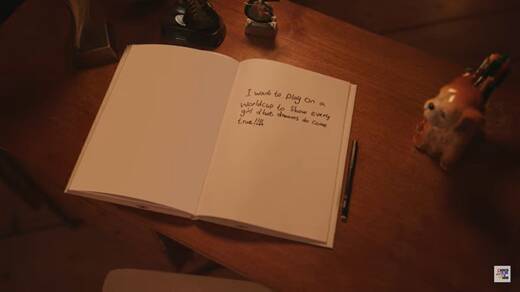 I want to play on a
worldcup to show every
girl that dreams do come
true!!!